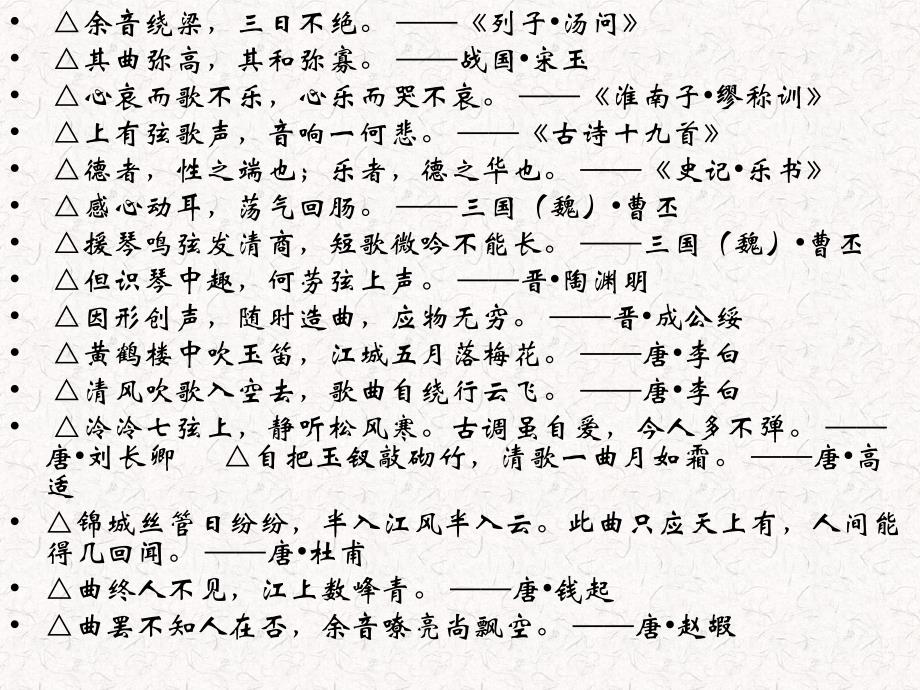 • △余音绕梁，三日不绝。 ——《列子•汤问》
• △其曲弥高，其和弥寡。 ——战国•宋玉
△心哀而歌不乐，心乐而哭不哀。 ——《淮南子•缪称训》
• △上有弦歌声，音响一何悲。 ——《古诗十九首》
• △德者，性之端也；乐者，德之华也。 ——《史记•乐书》
• △感心动耳，荡气回肠。 ——三国（魏）•曹丕
• △援琴鸣弦发清商，短歌微吟不能长。 ——三国（魏）•曹丕
• △但识琴中趣，何劳弦上声。 ——晋•陶渊明
• △因形创声，随时造曲，应物无穷。 ——晋•成公绥
• △黄鹤楼中吹玉笛，江城五月落梅花。 ——唐•李白
• △清风吹歌入空去，歌曲自绕行云飞。 ——唐•李白
• △泠泠七弦上，静听松风寒。古调虽自爱，今人多不弹。 ——
唐•刘长卿 △自把玉钗敲砌竹，清歌一曲月如霜。 ——唐•高
适
• △锦城丝管日纷纷，半入江风半入云。此曲只应天上有，人间能
得几回闻。 ——唐•杜甫
• △曲终人不见，江上数峰青。 ——唐•钱起
• △曲罢不知人在否，余音嘹亮尚飘空。 ——唐•赵嘏